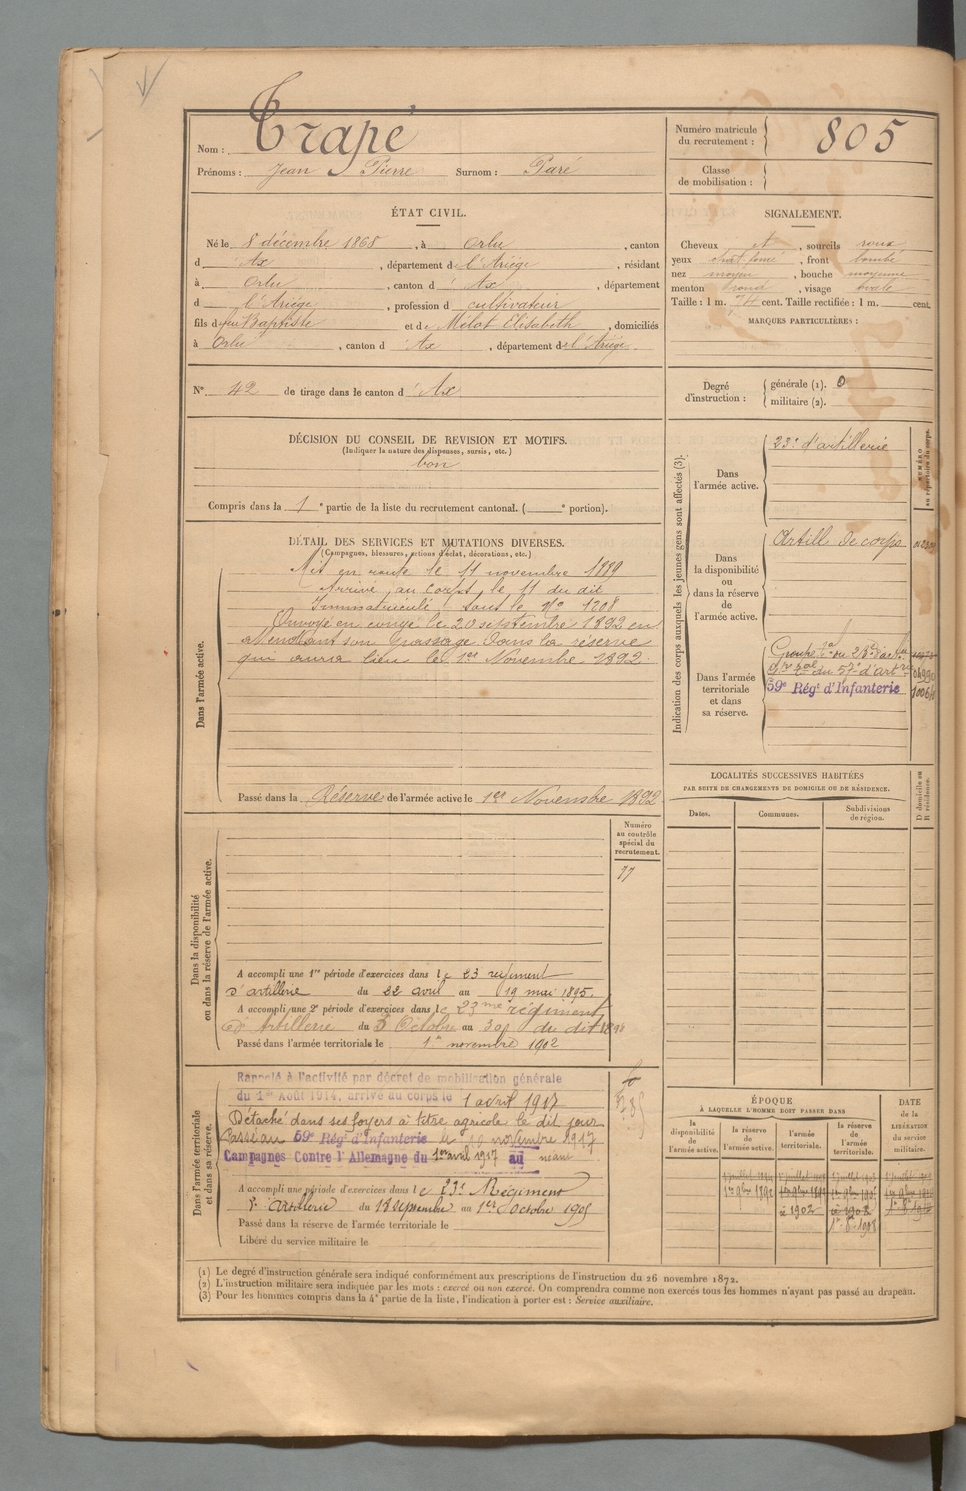 Nom : Trapé
Prénoms : Jean Pierre Surnom : Paré
Numéro matricule du recrutement : 805
Classe de mobilisation :
ÉTAT CIVIL.
Né le 8 décembre 1868, à Orlu, canton
d' Ax, département de l'Ariège, résidant
à Orlu, canton d' Ax, département
d l'Ariège, profession d cultivateur
fils de feu Baptiste et de Mélot Elisabeth, domiciliés
à Orlu, canton d' Ax, département de l'Ariège.
SIGNALEMENT.
Cheveux et, sourcils roux
yeux chat foncé, front bombé
nez moyen, bouche moyenne
menton rond, visage ovale
Taille : 1 m. cent. Taille rectifiée : 1 m. cent.
MARQUES PARTICULIÈRES :
N° 42 de tirage dans le canton d' Ax
Degré d'instruction : générale (1). 0
militaire (2).
DÉCISION DU CONSEIL DE REVISION ET MOTIFS.
(Indiquer la nature des dispenses, sursis, etc.)
bon
Compris dans la 1e partie de la liste du recrutement cantonal. ( e portion).
DÉTAIL DES SERVICES ET MUTATIONS DIVERSES.
(Campagnes, blessures, actions d'éclat, décorations, etc.)
Dans l'armée active.
Mis en route le 11 novembre 1889
Arrivé au corps le 11 du dit
Immatriculé sous le N° 1208
Envoyé en congé le 20 septembre 1892 en
attendant son passage dans la réserve
qui aura lieu le 1er Novembre 1892.
Passé dans la Réserve de l'armée active le 1er Novembre 1892
Indication des corps auxquels les jeunes gens sont affectés (3).
NUMÉRO au répertoire du corps.
Dans l'armée active.
23e d'artillerie
Dans la disponibilité ou dans la réserve de l'armée active.
Artill. de corps
Dans l'armée territoriale et dans sa réserve.
Groupe du 23e d'art.
du 57e d'art
59e Régt d'Infanterie
LOCALITÉS SUCCESSIVES HABITÉES
PAR SUITE DE CHANGEMENTS DE DOMICILE OU DE RÉSIDENCE.
D domicile ou R résidence.
Dates. Communes. Subdivisions de région.
Dans la disponibilité ou dans la réserve de l'armée active.
Numéro au contrôle spécial du recrutement.
77
A accompli une 1re période d'exercices dans le 23 régiment
d'artillerie du 22 avril au 19 mai 1895.
A accompli une 2e période d'exercices dans le 23me régiment
d'Artillerie du 3 Octobre au 30 du dit
Passé dans l'armée territoriale le 1er novembre 1902
Dans l'armée territoriale et dans sa réserve.
Rappelé à l'activité par décret de mobilisation générale
du 1er Août 1914, arrivé au corps le 1 avril 1917
Détaché dans ses foyers à titre agricole le dit jour
Passé au 59e Régt d'Infanterie le novembre 1917
Campagnes Contre l'Allemagne du 1er avril 1917 au néant
A accompli une période d'exercices dans le 23e Régiment
d'artillerie du septembre au 1er Octobre 1905
Passé dans la réserve de l'armée territoriale le
Libéré du service militaire le
ÉPOQUE
À LAQUELLE L'HOMME DOIT PASSER DANS
la disponibilité de l'armée active. la réserve de l'armée active. l'armée territoriale. la réserve de l'armée territoriale.
DATE de la LIBÉRATION du service militaire.
(1) Le degré d'instruction générale sera indiqué conformément aux prescriptions de l'instruction du 26 novembre 1872.
(2) L'instruction militaire sera indiquée par les mots : exercé ou non exercé. On comprendra comme non exercés tous les hommes n'ayant pas passé au drapeau.
(3) Pour les hommes compris dans la 4e partie de la liste, l'indication à porter est : Service auxiliaire.